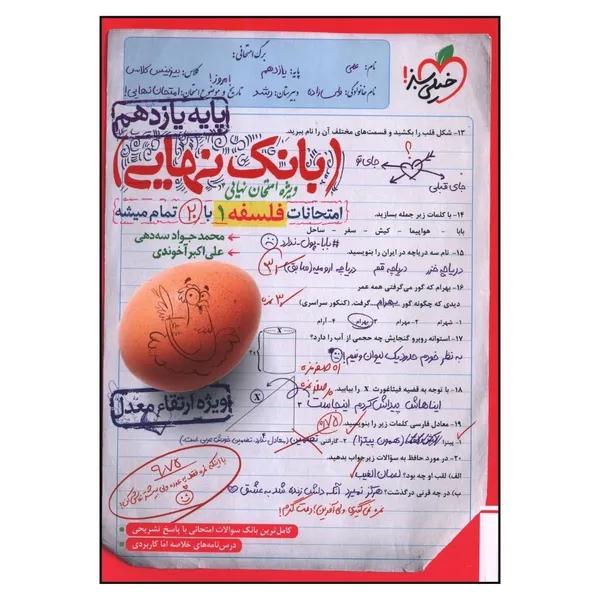 برگ امتحانی:
نام: علی
پایه: یازدهم
کلاس: بیزینس کلاس
نام خانوادگی:
دبیرستان: رشد
تاریخ و موضوع امتحان: امروز! امتحان نهایی!
خیلی سبز!
پایه یازدهم
(بانک نهایی)
ویژه امتحان نهایی
امتحانات فلسفه ۱ با ۲۰ تمام میشه
محمدجواد سه‌دهی
علی‌اکبر آخوندی
ویژه ارتقاء معدل
۱۳- شکل قلب را بکشید و قسمت‌های مختلف آن را نام ببرید.
؟
جای تو
جای قبلی
۱۴- با کلمات زیر جمله بسازید.
بابا - هواپیما - کیش - سفر - ساحل
#بابا_پول_ندارد
۱۵- نام سه دریاچه در ایران را بنویسید.
دریاچه خزر دریاچه قم دریاچه ارومیه (سابق)
۱۶- بهرام که گور می‌گرفتی همه عمر
دیدی که چگونه گور بهرام گرفت. (کنکور سراسری)
۱- شهرام ۲- مهرام ۳- بهرام ۴- آرام
۱۷- استوانه روبرو گنجایش چه حجمی از آب را دارد؟
به نظر خودم حدود یک لیوان و نیم!
۱۸- با توجه به قضیه فیثاغورث x را بیابید.
ایناهاش پیداش کردم اینجاست
x
۱۹- معادل فارسی کلمات زیر را بنویسید.
۱- پیتزا (همون پیتزا) ۲- گارانتی
۲۰- در مورد حافظ به سؤالات زیر جواب بدهید.
الف) لقب او چه بود؟ لسان الغیب
ب) در چه قرنی درگذشت؟ هرگز نمیرد آنکه دلش زنده شد به عشق
نمره نمی‌گیری ولی آفرین!
۹٫۷۵
کامل‌ترین بانک سوالات امتحانی با پاسخ تشریحی
درس‌نامه‌های خلاصه اما کاربردی